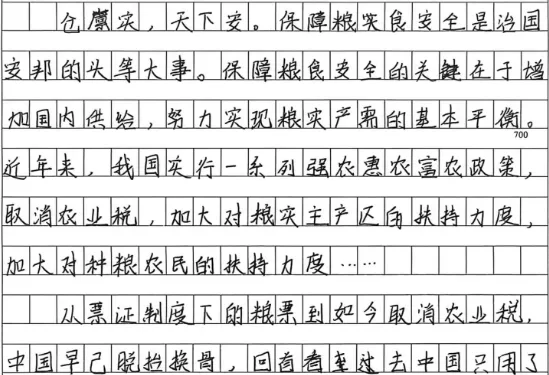 仓廪实，天下安。保障粮实食安全是治国
安邦的头等大事。保障粮食安全的关键在于增
加国内供给，努力实现粮实产需的基本平衡。
700
近年来，我国实行一系列强农惠农富农政策，
取消农业税，加大对粮实主产区的扶持力度，
加大对种粮农民的扶持力度……
从票证制度下的粮票到如今取消农业税，
中国早已脱抬换骨，回首看过去中国只用了